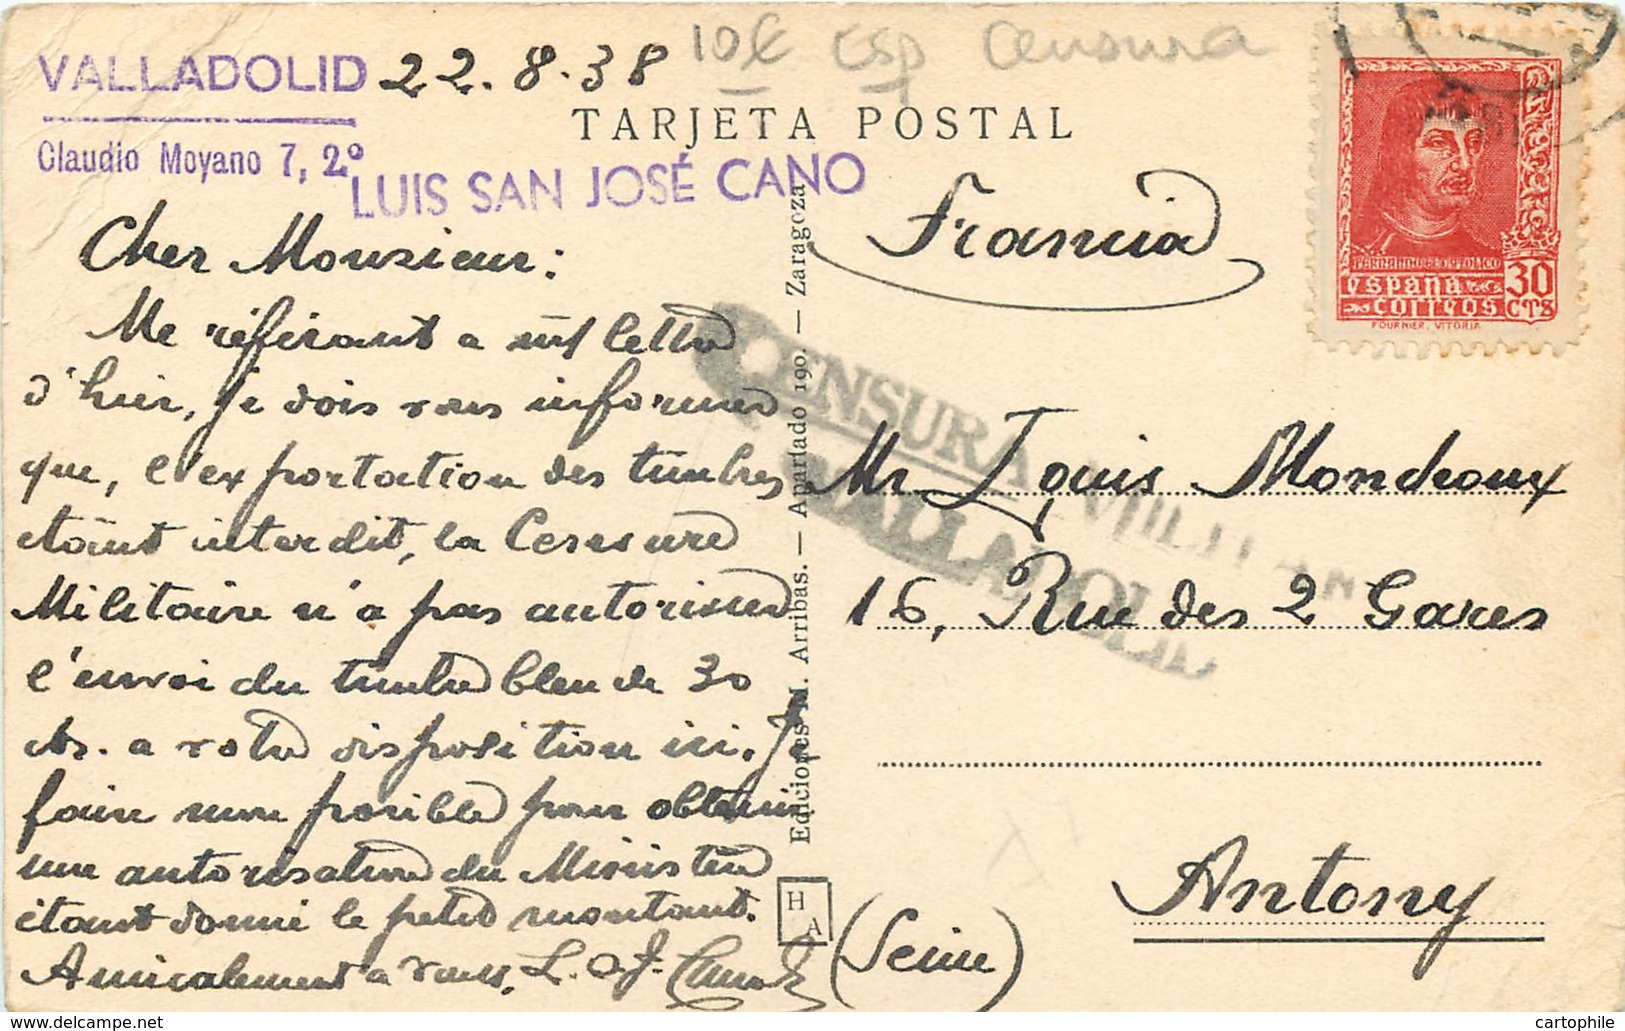 VALLADOLID 22.8.38
10€ esp Censura
TARJETA POSTAL
Claudio Moyano 7, 2º
LUIS SAN JOSÉ CANO
Francia
FERNANDO EL CATOLICO
ESPAÑA
CORREOS
30
CTS
FOURNIER. VITORIA
Cher Monsieur:
Me référant a ma lettre
d'hier, je dois vous informer
que, l'exportation des timbres
etant interdit, la Censure
Militaire n'a pas autorisée
l'envoi du timbre bleu de 30
cts. a votre disposition ici. Je
faire mon possible pour obtenir
une autorisation du Ministère
étant donné le petit montant.
Amicalement a vous, L. S. J. Cano
CENSURA MILITAR
VALLADOLID
Ediciones M. Arribas. — Apartado 190. — Zaragoza
H A
Mr Louis Mondeoux
16, Rue des 2 Gares
Antony
(Seine)
delcampe.net
cartophile